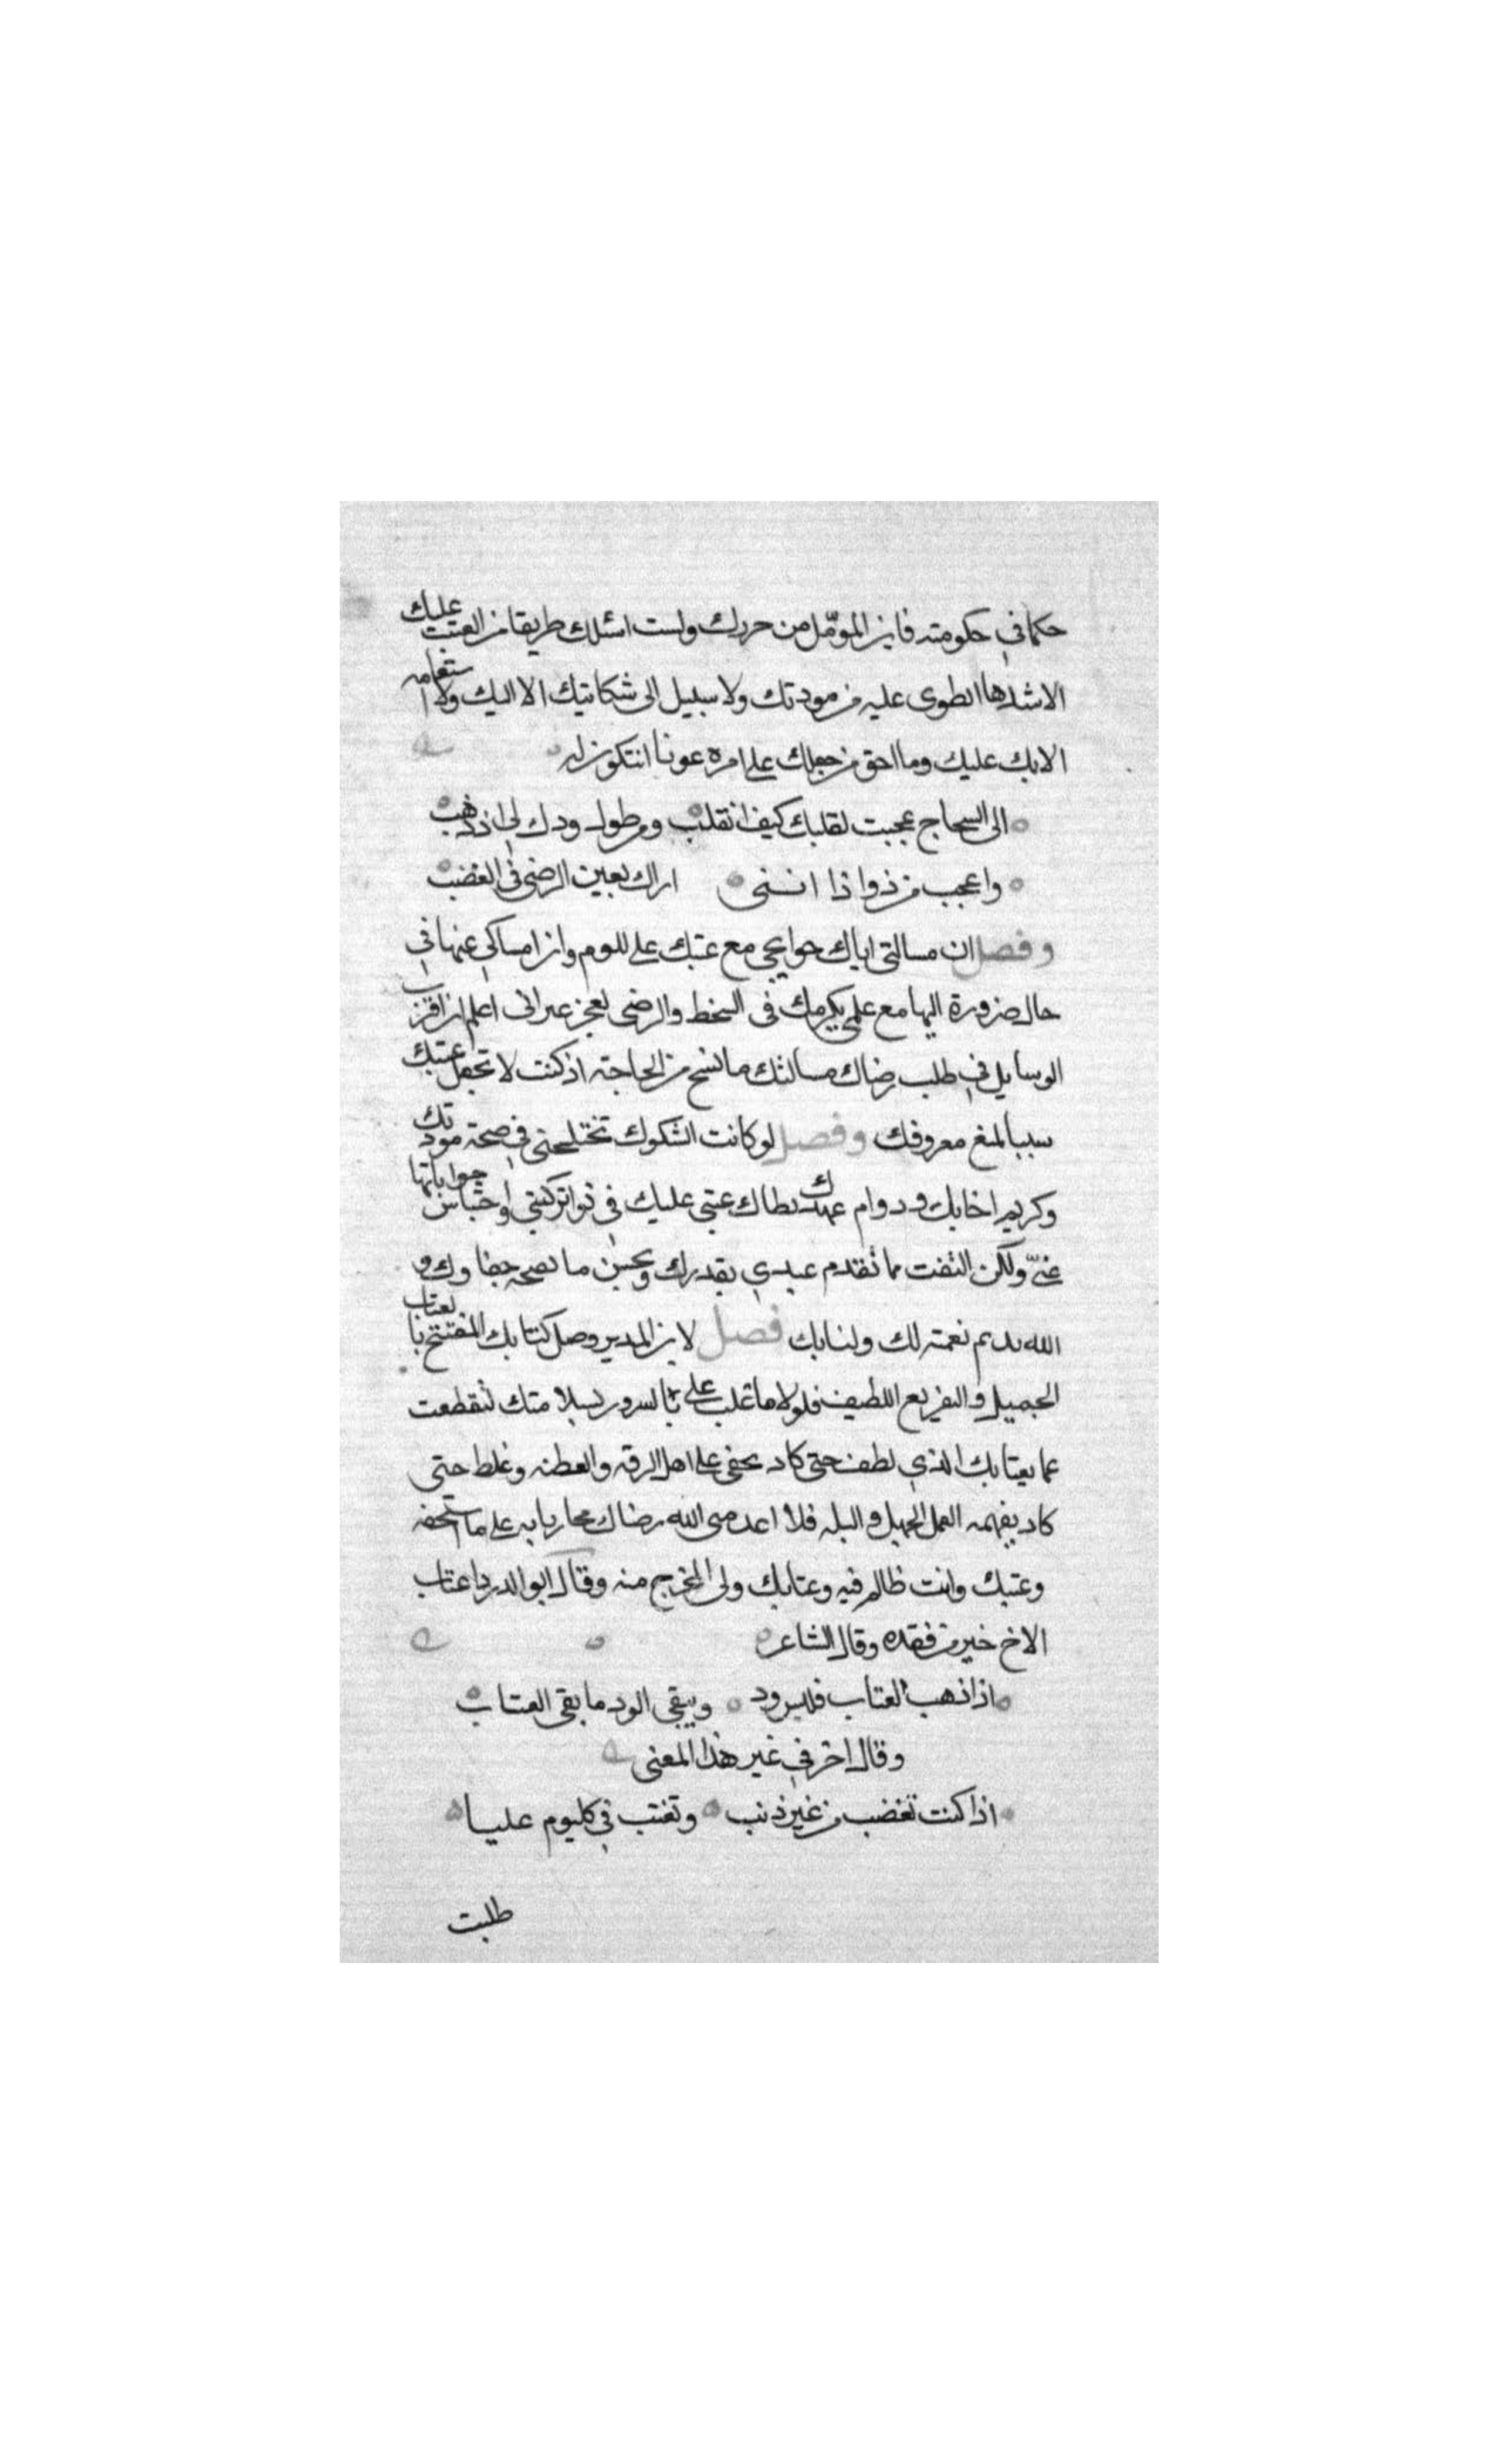 حكما في حكومته فاين المؤمل من حريك ولست اسئلك طريقا من العتبت عليك
الا شدها انطوى عليه من مودتك ولا سبيل الى شكايتيك الا اليك ولا استعانه
الا بك عليك وما احق من جعلك على امره عونا ان تكون له
الى السحاج عجبت لقلبك كيف انقلب ومن طول ودك لى اذ ذهب
واعجب من ذوا ذا اننى اراك بعين الرضى فى الغضب
وفصل ان مسالتى اياك حوايجى مع عتبك على للوم وان امساكى عنها في
حال ضرورة اليها مع علمى بكرمك فى السخط والرضى لعجز غير انى اعلم ان اقرب
الوسايل في طلب رضاك مسالتك ما سنح من الحاجة اذ كنت لا تجعل عتبك
سببا لمنع معروفك وفصل لو كانت الشكوك تختلجنى في صحة مودتك
وكريم اخايك ودوام عهدك لطال عتبى عليك في تواتر كتبى واحتباس جواباتها
عنى ولكن الثقت بما تقدم عندي بقدرك ويحسن ما نصحه جفاوك و
الله يديم نعمته لك ولنا بك فصل لابن المدبر وصل كتابك المفتتح بالعتاب
الجميل والتقريع اللطيف فلولا ما غلب على بالسرور بسلامتك لتقطعت
غما بعتابك الذي لطف حتى كاد يخفى على اهل الرقة والفطنه وغلظ حتى
كاد يفهمه العمل الجهل والبله فلا اعدمنى الله رضاك مجازيا به على ما استحقه
وعتبك وانت ظالم فيه وعتابك ولى المخرج منه وقال ابو الدردا عتاب
الاخ خير من فقده وقال الشاعر
اذا ذهب العتاب فليس ود ويبقى الود ما بقى العتاب
وقال اخر في غير هذا المعنى
اذا كنت تغضب من غير ذنب وتعتب في كل يوم عليا
طلبت